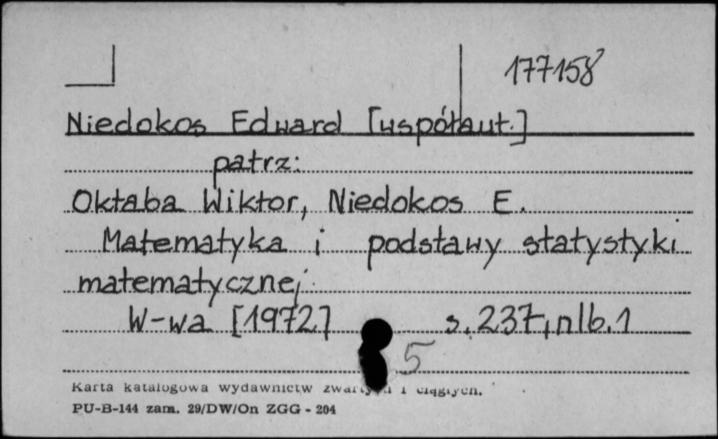 177158
Niedokos Edward [współaut.]
patrz:
Oktaba Wiktor, Niedokos E.
Matematyka i podstawy statystyki
matematycznej
W-wa [1972] s. 237, nlb. 1
5
Karta katalogowa wydawnictw zwartych i ciągłych.
PU-B-144 zam. 29/DW/On ZGG - 204